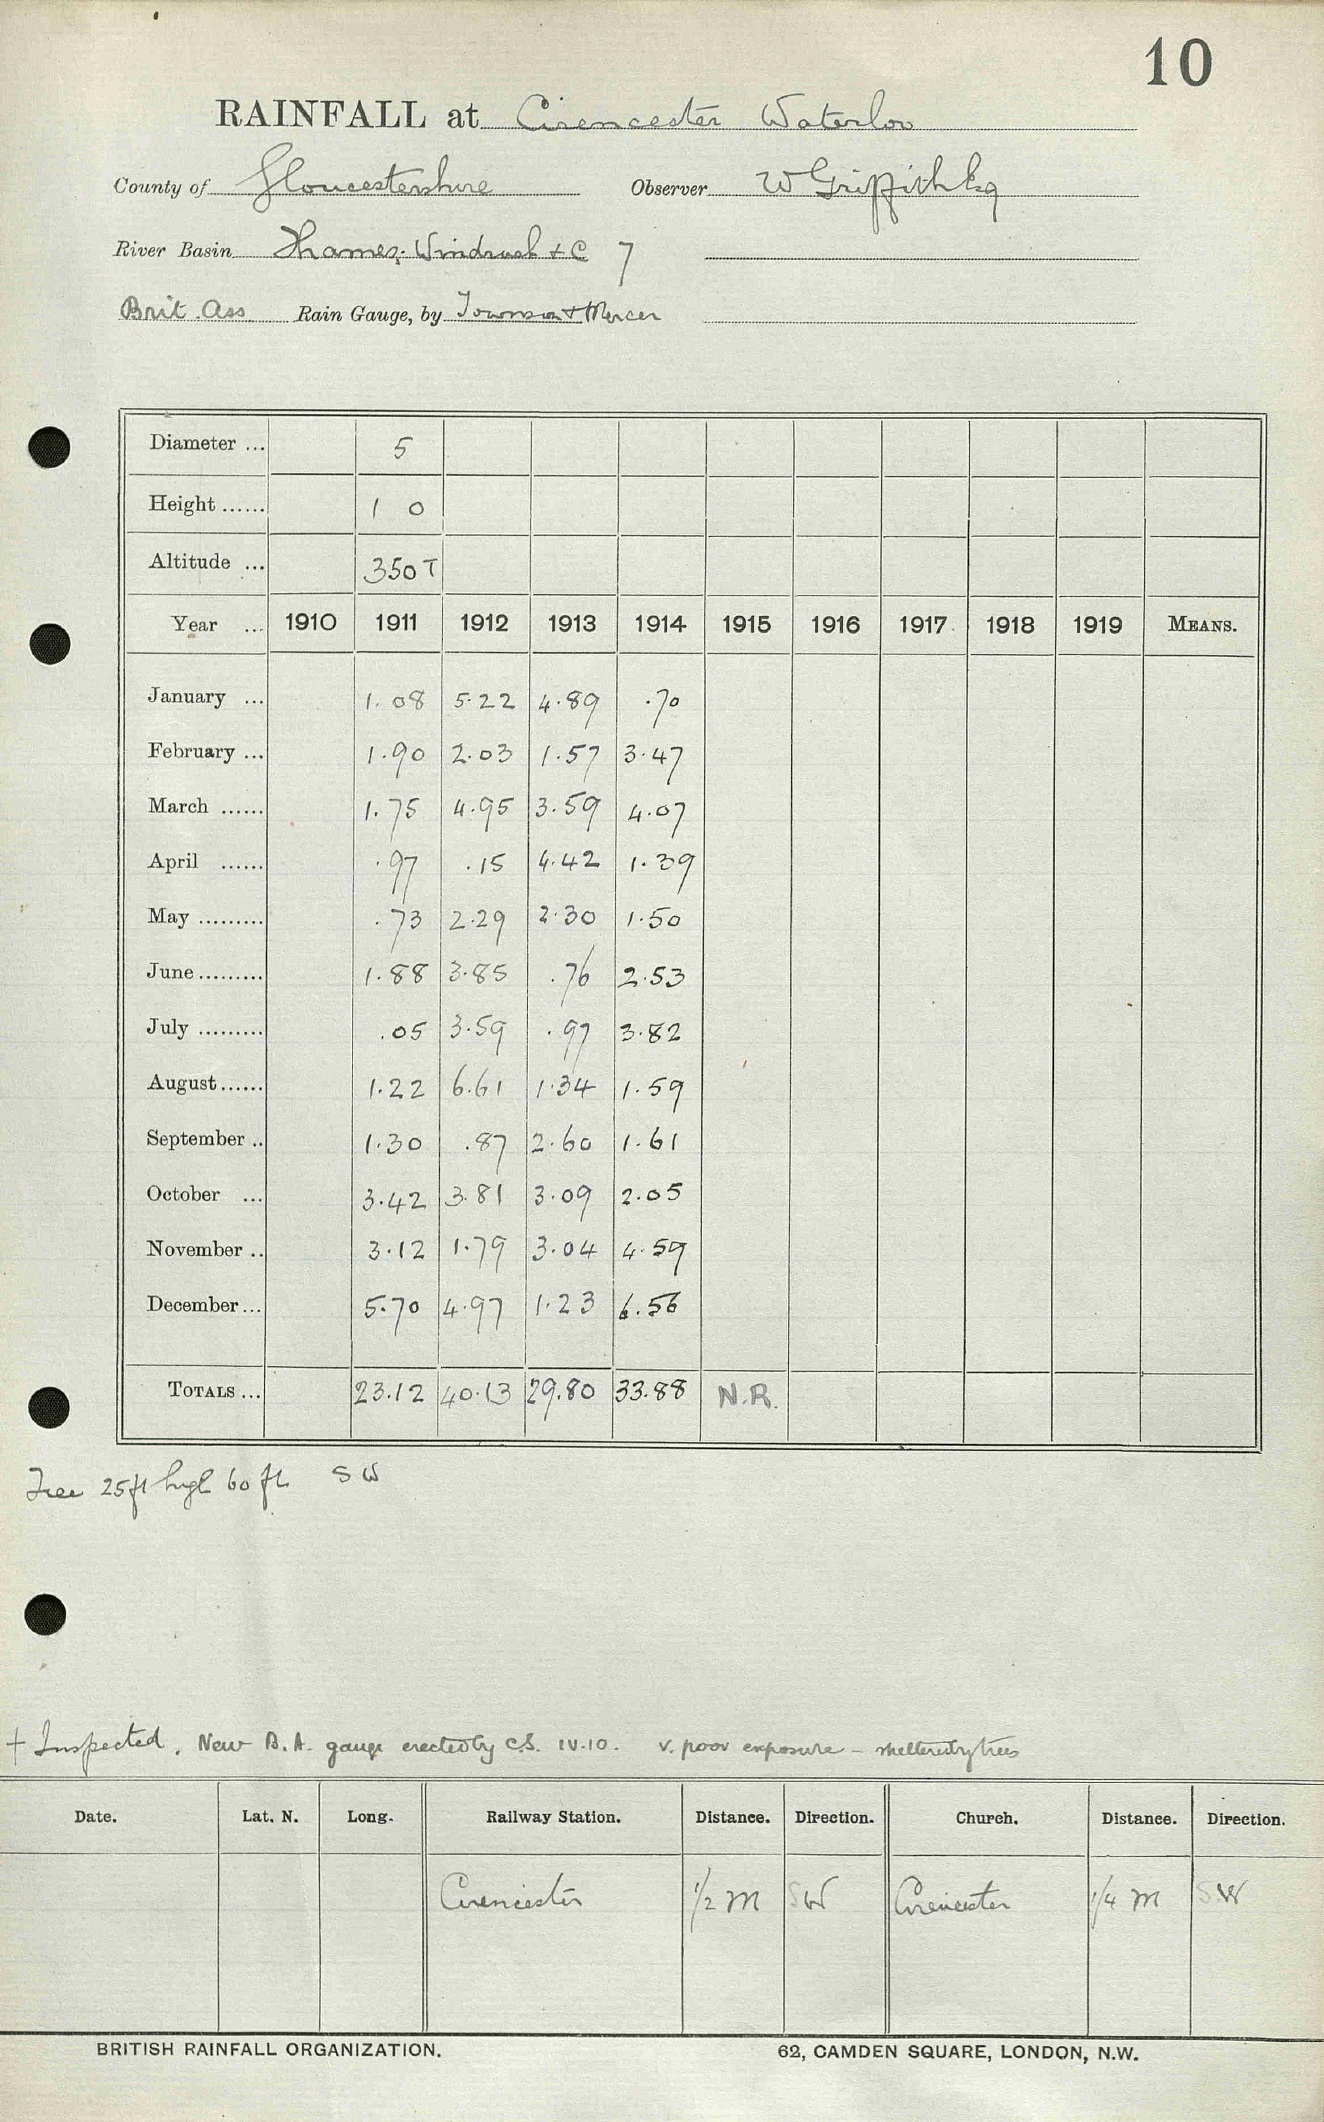 10
RAINFALL at Cirencester Waterloo
County of Gloucestershire Observer W Griffith Esq
River Basin Thames. Windrush + C 7
Brit. Ass. Rain Gauge, by Townson + Mercer
Diameter ... 5
Height ...... 1 0
Altitude ... 350 T
Year ... 1910 1911 1912 1913 1914 1915 1916 1917 1918 1919 MEANS.
January ... 1.08 5.22 4.89 .70
February ... 1.90 2.03 1.57 3.47
March ...... 1.75 4.95 3.59 4.07
April ...... .97 .15 4.42 1.39
May ......... .73 2.29 2.30 1.50
June ......... 1.88 3.85 .76 2.53
July ......... .05 3.59 .97 3.82
August ...... 1.22 6.61 1.34 1.59
September .. 1.30 .87 2.60 1.61
October ... 3.42 3.81 3.09 2.05
November .. 3.12 1.79 3.04 4.59
December ... 5.70 4.97 1.23 6.56
TOTALS ... 23.12 40.13 29.80 33.88 N.R.
Tree 25ft high 60 ft SW
+ Inspected. New B.A. gauge erected by C.S. IV.10. v. poor exposure – sheltered by trees
Date. Lat. N. Long. Railway Station. Distance. Direction. Church. Distance. Direction.
Cirencester 1/2 m SW Cirencester 1/4 m SW
BRITISH RAINFALL ORGANIZATION. 62, CAMDEN SQUARE, LONDON, N.W.